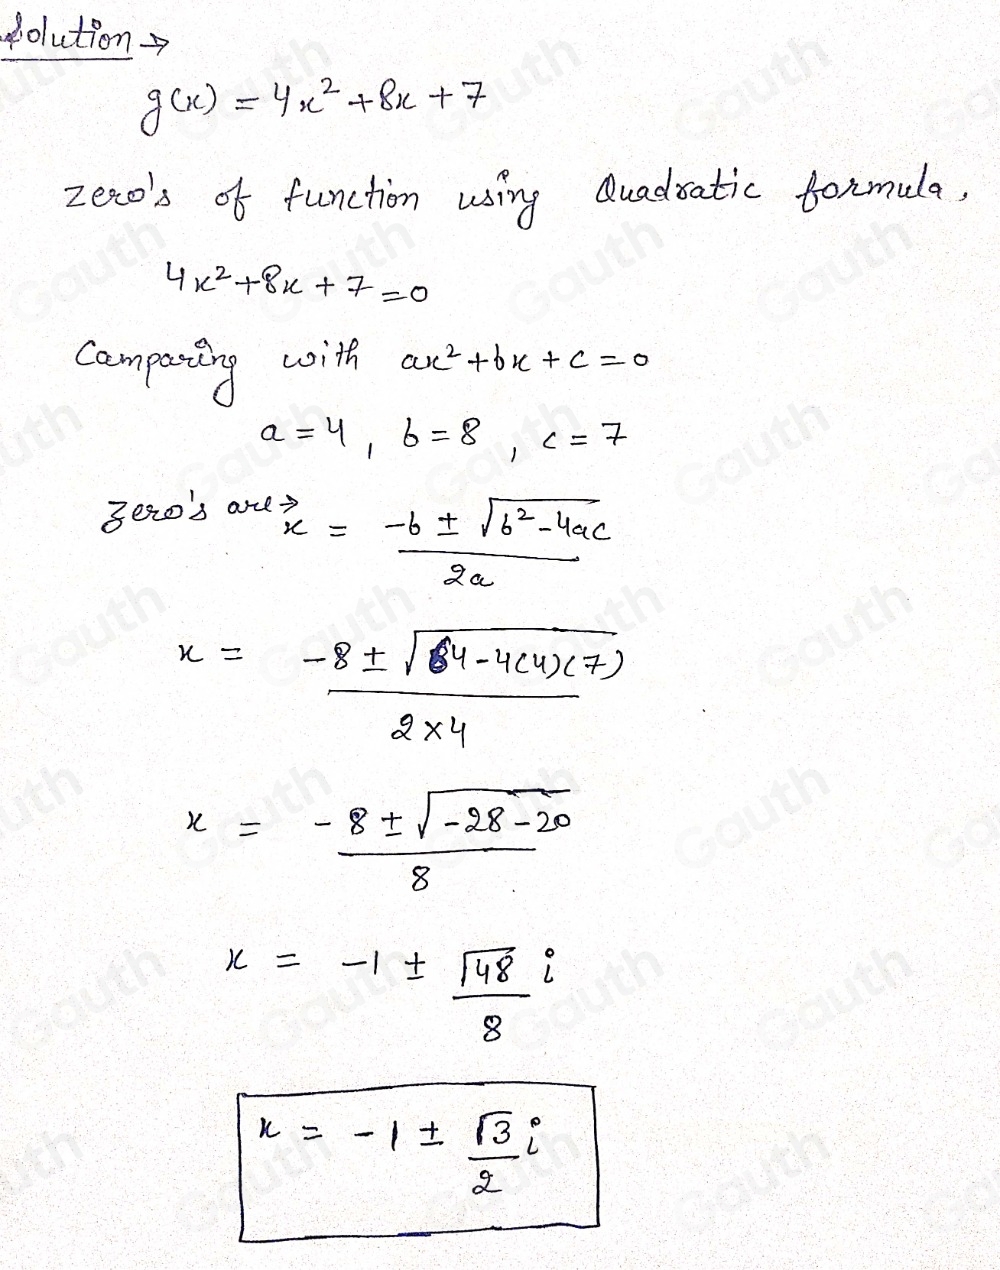 Solution →
g(x) = 4x² + 8x + 7
zero's of function using Quadratic formula,
4x² + 8x + 7 = 0
Camparing with ax² + bx + c = 0
a = 4, b = 8, c = 7
zero's are → x = (-b ± √(b² - 4ac)) / 2a
x = (-8 ± √(64 - 4(4)(7))) / (2 × 4)
x = (-8 ± √(-28 - 20)) / 8
x = -1 ± (√48 / 8) i
x = -1 ± (√3 / 2) i
Gauth